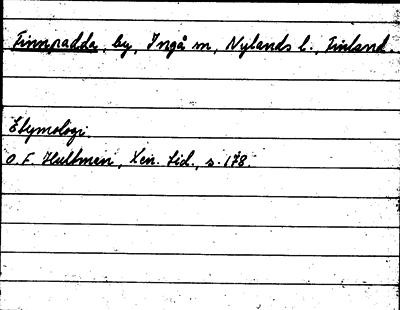 Finnpadda, by, Ingå m, Nylands l., Finland.
Etymologi.
O. F. Hultman, Xen. Lid., s. 178.